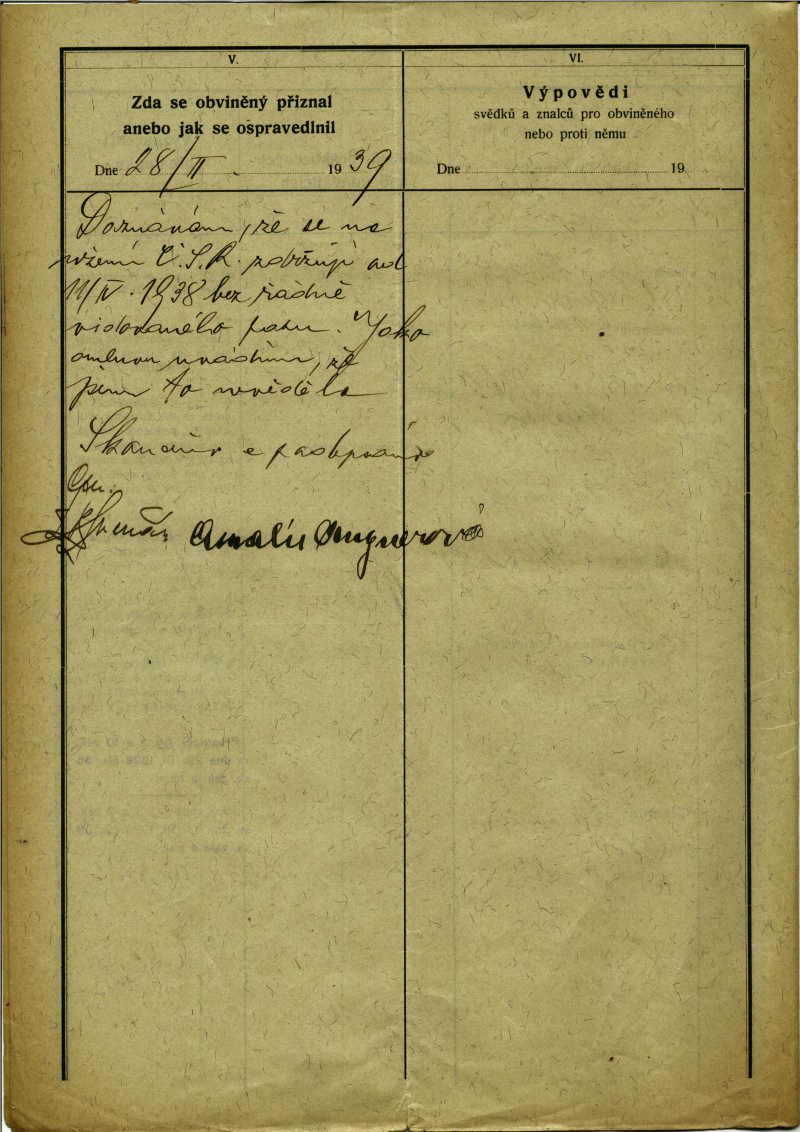 V.
Zda se obviněný přiznal
anebo jak se ospravedlnil
Dne 28/II. 1939
Doznávám, že se na
území Č.S.R. zdržuji od
11/IV. 1938 bez řádně
vidovaného pasu. Jako
omluvu uvádím, že
jsem to nevěděla
Skončeno a podepsáno
Amalie
VI.
Výpovědi
svědků a znalců pro obviněného
nebo proti němu
Dne 19